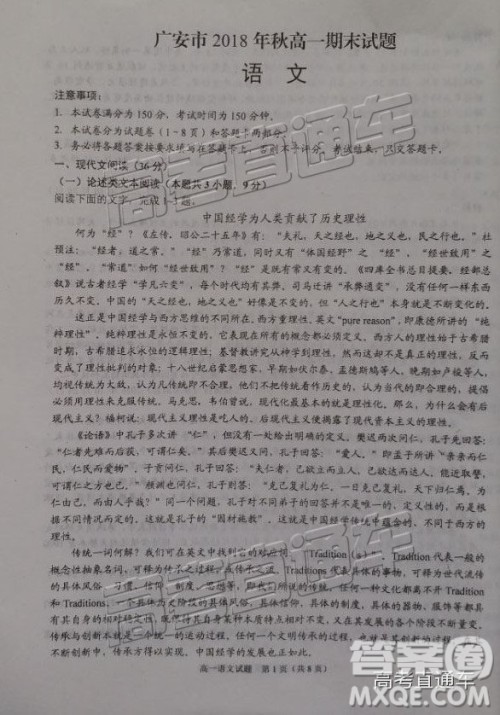 广安市 2018 年秋高一期末试题
语 文
注意事项：
1. 本试卷满分为 150 分，考试时间为 150 分钟。
2. 本试卷分为试题卷（1~8 页）和答题卡两部分。
3. 务必将各题答案按要求填写在答题卡上，否则不予评分。考试结束，只交答题卡。
一、现代文阅读（36 分）
（一）论述类文本阅读（本题共 3 小题，9 分）
阅读下面的文字，完成 1~3 题。
中国经学为人类贡献了历史理性
何为“经”？《左传，昭公二十五年》有：“夫礼，天之经也，地之义也，民之行也。”杜
预注：“经者，道之常。”“经”乃常道，同时又有“体国经野”之“经”，“经世致用”之
“经”。“常道”如何“经世致用”？“经”是既有常又有变的。《四库全书总目提要，经部总
叙》说古者经学“学凡六变”，每个时代均有其弊。司马迁讲“承弊通变”，没有任何一样东西
历久不变。中国的“天之经也，地之义也”好像是不变的，但“人之行也”本身就是不断变化的。
这正是中国经学与西方思维的不同所在。西方重变理性，英文“pure reason”，即康德所讲的“纯
粹理性”。纯粹理性是永恒不变的，它表现在所有的概念都必须定义。西方人的理性始于古希腊
时期，古希腊追求永恒的逻辑理性；基督教讲究从神学到理性，然而这却不是真正的理性，反而
变成了理性批判的对象；十八世纪启蒙思想家，早期如伏尔泰、孟德斯鸠等人，晚期如卢梭等人，
均视传统为大敌，认为凡传统即不合理，他们不把传统看作历史的，认为当下的即合理的，提倡
必须用理性来克服传统。马克思、韦伯曾说，现代化最基本的就是理性化。那么，为什么会有后
现代主义？福柯说：现代主义理性是吃人的。后现代主义便揭露了现代资本主义的吃人。
《论语》中孔子多次讲“仁”，但没有一处给出明确的定义。樊迟两次问仁，孔子回答：
“仁者先难而后获，可谓仁矣。”其后樊迟又问，孔子回答：“爱人。”即孟子所讲“亲亲而仁
民，仁民而爱物”。子贡问仁，孔子回答：“夫仁者，己欲立而立人，己欲达而达人，能近取譬，
可谓仁之方也已。”颜渊问仁，孔子回答：“克己复礼为仁。一日克己复礼，天下归仁焉。为仁
由己，而由人乎哉？”同一个问题，孔子对不同弟子的回答并不是唯一的、定义性的，而是根
据不同的主体做出不同的回答。这并不意味着孔子的回答不是理性的，而是体现了历史的、变化
的理性，这就是孔子的“因材施教”，这就是中国经学传统中蕴含的、不同于西方的理性。
传统一词何解？我们可在英文中找到它的对应词：“Tradition（s）”。Tradition 代表一般的
概念性抽象名词，可释为传承之过程，或传承之流，Traditions 代表具体的事物，可释为历史流传
的具体风俗、习惯、信仰、制度、思想等，即我们所说的传统。任何一种文化都离不开 Tradition
和 Traditions，一个具体为史阶段的具体风俗、信仰、制度，一个具体的器物、服饰等都具
有其自身的相对稳定性，现实存在的文化，又在其发展的各个阶段不断变化、创新。
传承与创新本就是一个文明内在的东西，中国文明的发展也正是在不断的传承与创新中
发展起来的，中国经学的发展也正是如此。
高一语文试题　第 1 页（共 8 页）
高考直通车
答案圈
高考直通车
MXQE.COM